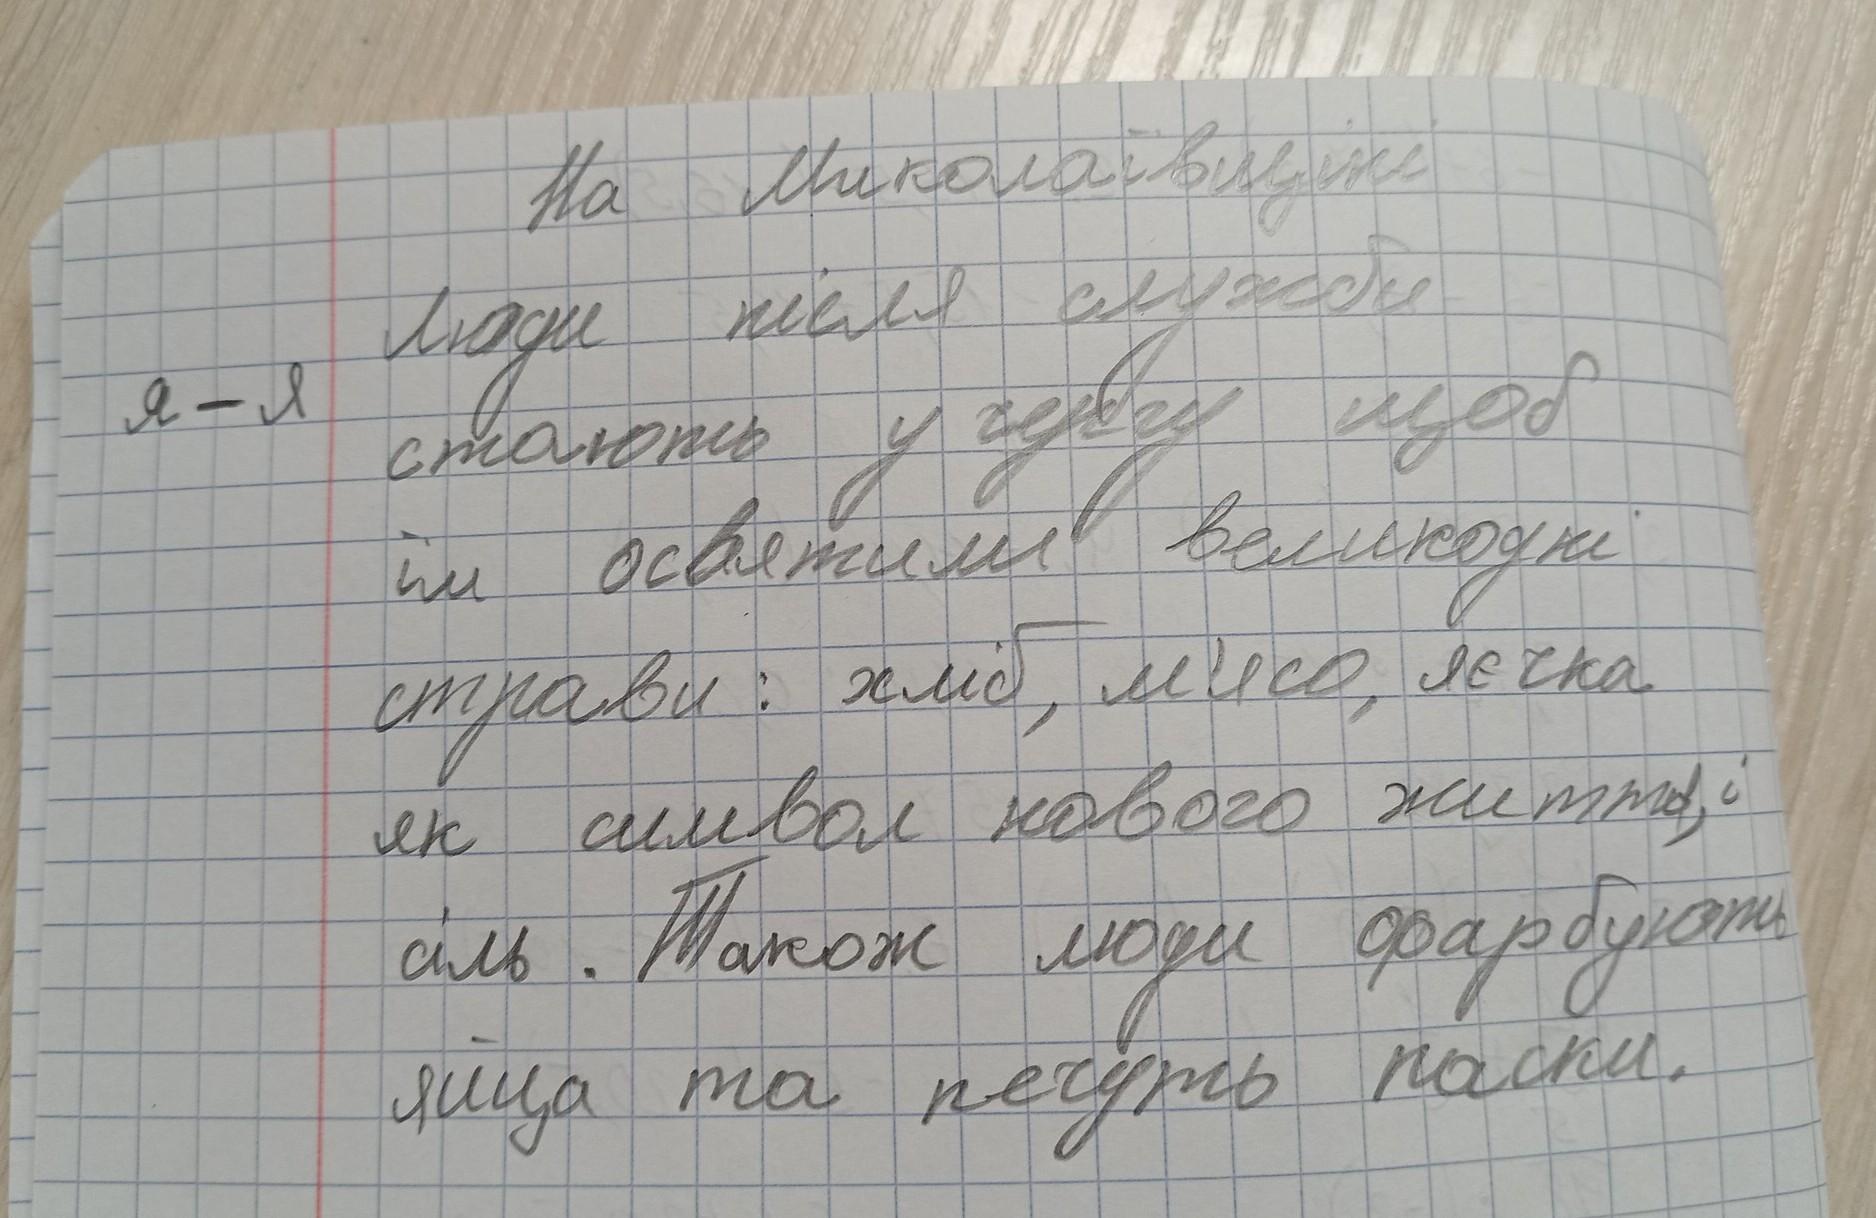 На Миколаївщині
люди після служби
я – я
стають у чергу щоб
їм освятили великодні
страви: хліб, м'ясо, яєчка
як символ нового життя, і
сіль. Також люди фарбують
яйца та печуть паски.